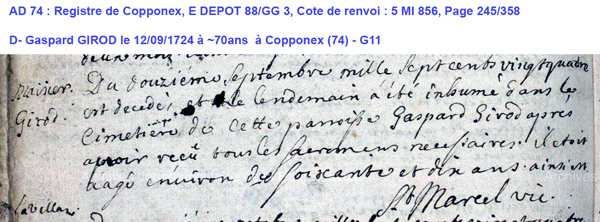 AD 74 : Registre de Copponex, E DEPOT 88/GG 3, Cote de renvoi : 5 MI 856, Page 245/358
D- Gaspard GIROD le 12/09/1724 à ~70ans à Copponex (74) - G11
Du douzieme septembre mille sept cents vingt quatre
est decedé et le lendemain a été inhumé dans le
Girod.
Cimetiére de cette parroisse Gaspard Girod aprés
avoir reçû tous les sacremens necessaires. il etoit
aagé environ de soixante et dix ans. ainsi est.
St Marcel vic.